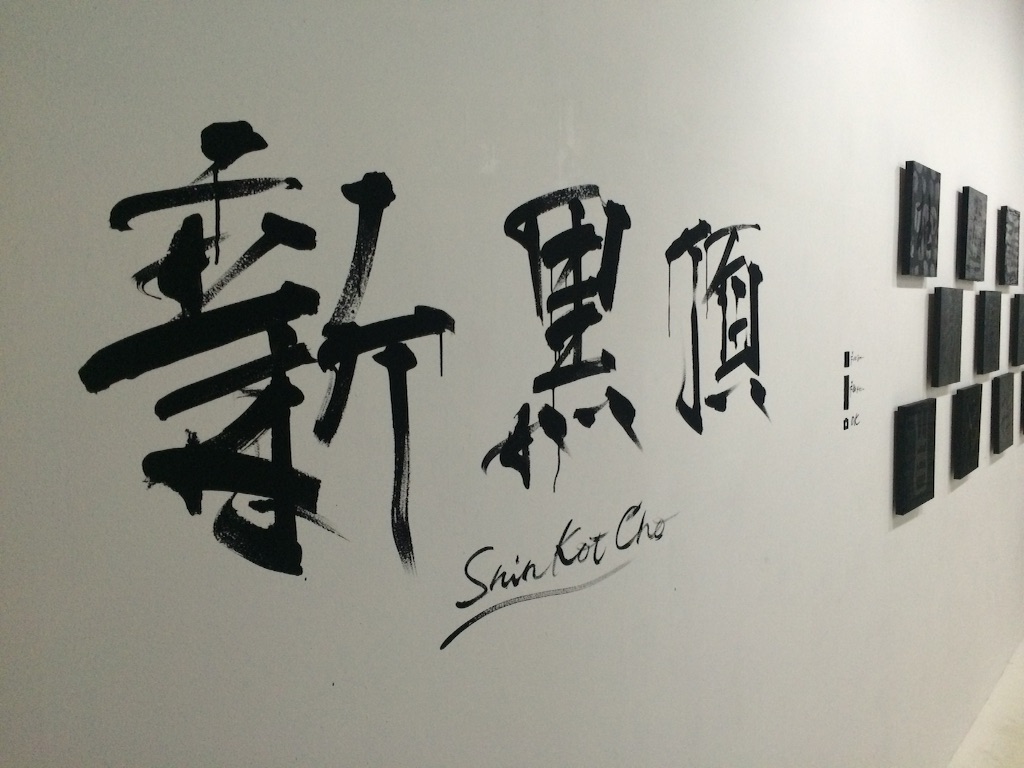 新黑頂
Shin Kot Cho